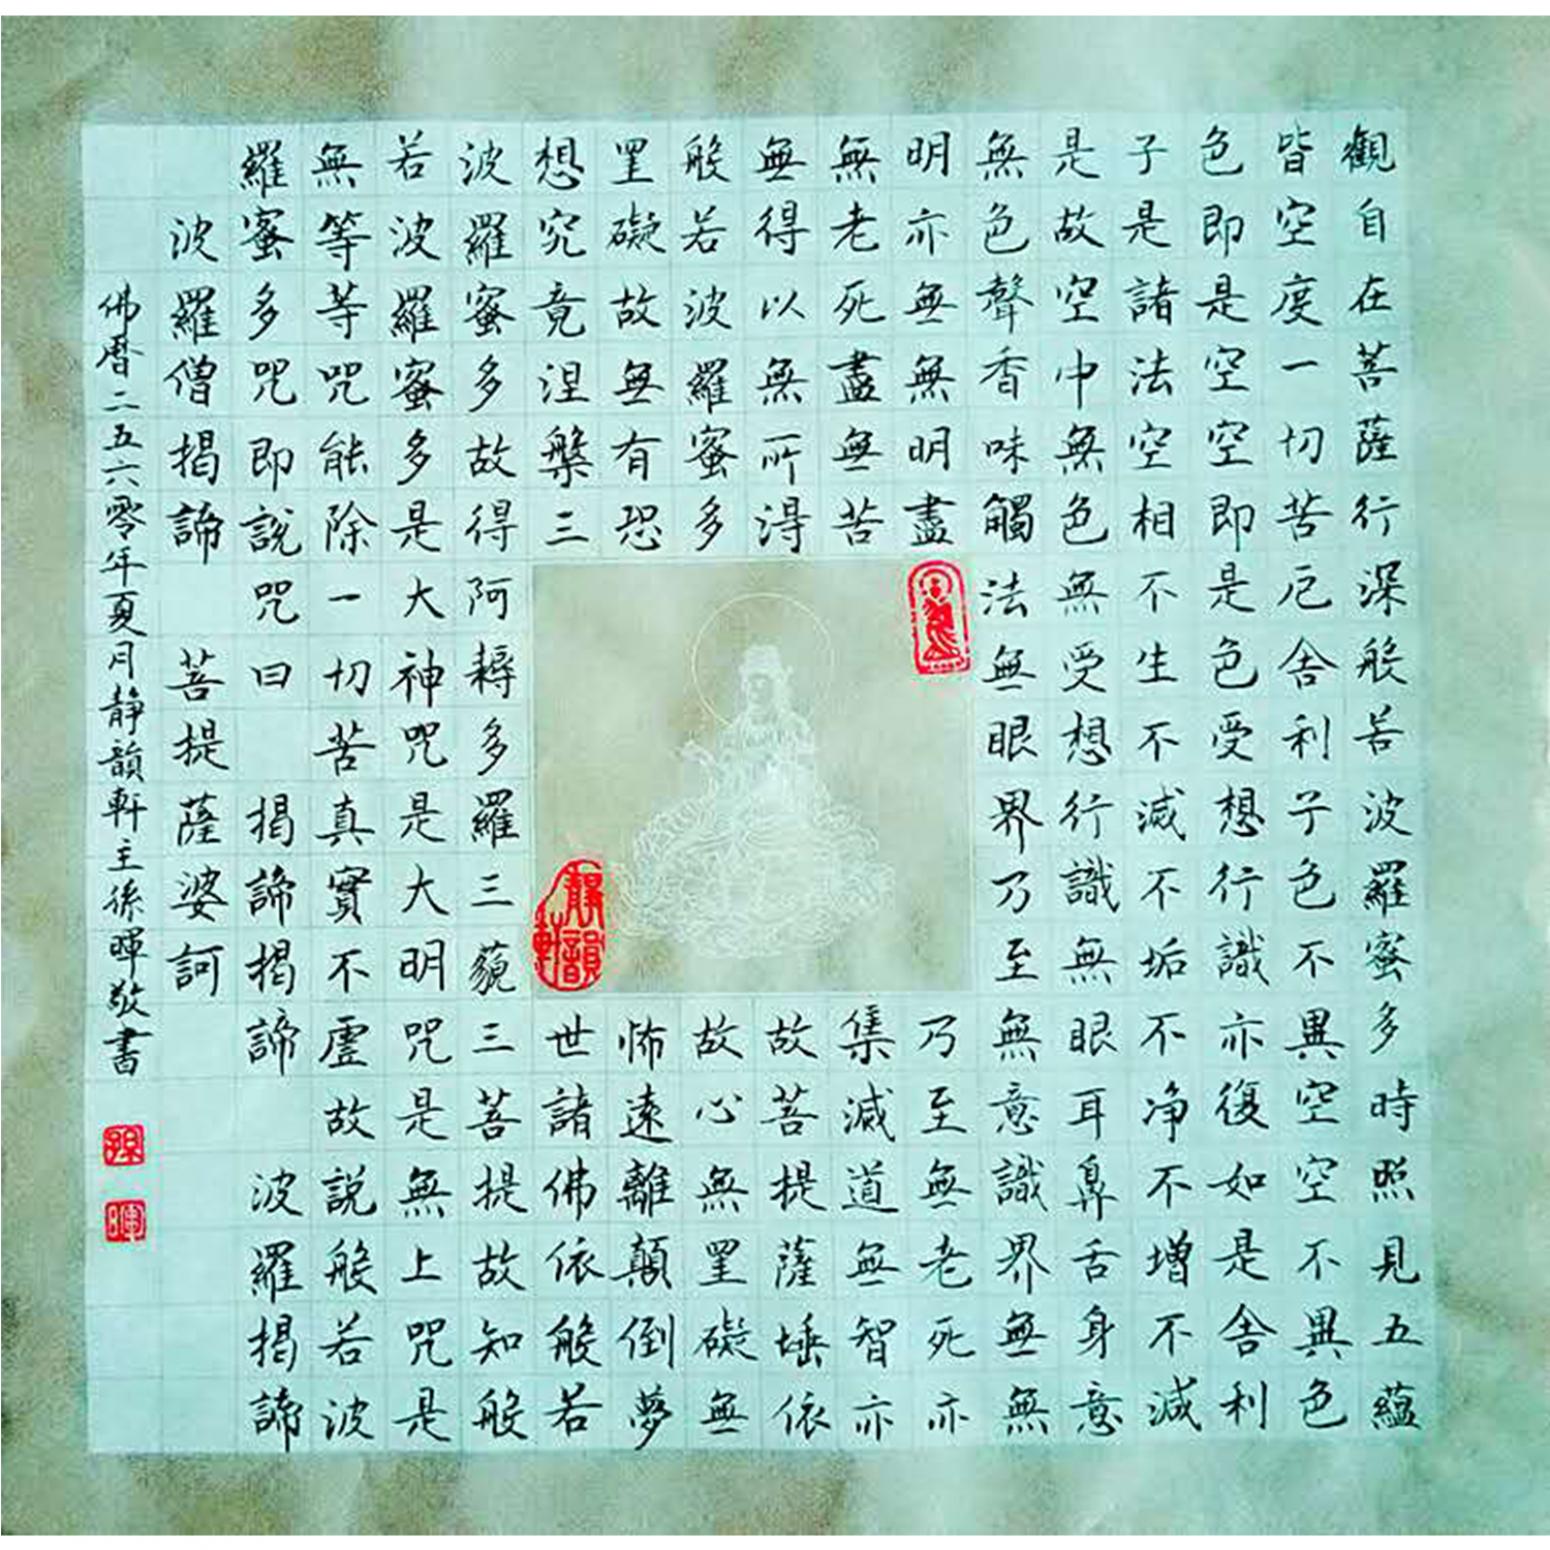 觀自在菩薩行深般若波羅蜜多時照見五蘊
皆空度一切苦厄舍利子色不異空空不異色
色即是空空即是色受想行識亦復如是舍利
子是諸法空相不生不滅不垢不净不增不減
是故空中無色無受想行識無眼耳鼻舌身意
無色聲香味觸法無眼界乃至無意識界無無
明亦無無明盡乃至無老死亦
無老死盡無苦集滅道無智亦
無得以無所得故菩提薩埵依
般若波羅蜜多故心無罣礙無
罣礙故無有恐怖遠離顛倒夢
想究竟涅槃三世諸佛依般若
波羅蜜多故得阿耨多羅三藐三菩提故知般
若波羅蜜多是大神咒是大明咒是無上咒是
無等等咒能除一切苦真實不虛故說般若波
羅蜜多咒即說咒曰 揭諦揭諦 波羅揭諦
波羅僧揭諦 菩提薩婆訶
佛曆二五六零年夏月静韻軒主孫暉敬書
孫
暉
靜韻軒